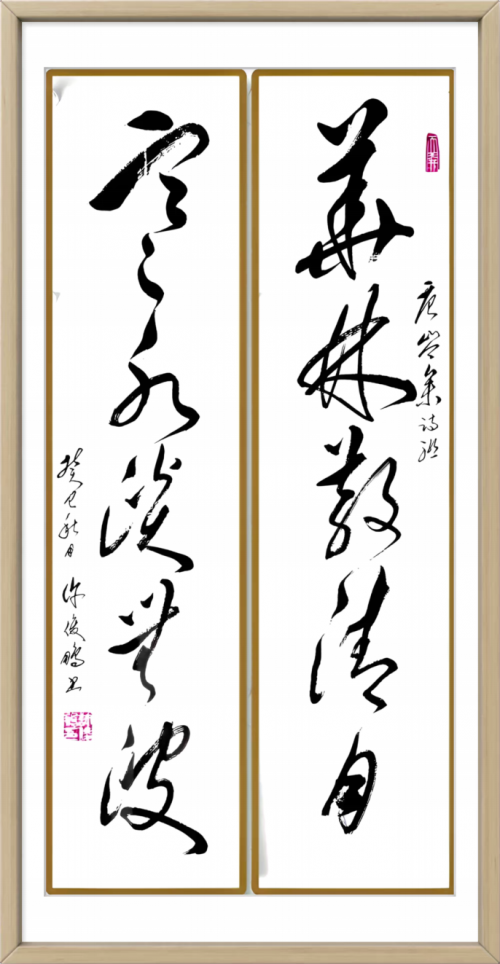 華林散清月
唐岑參詩聯
寒水淡無波
癸巳秋月 俊鵬書